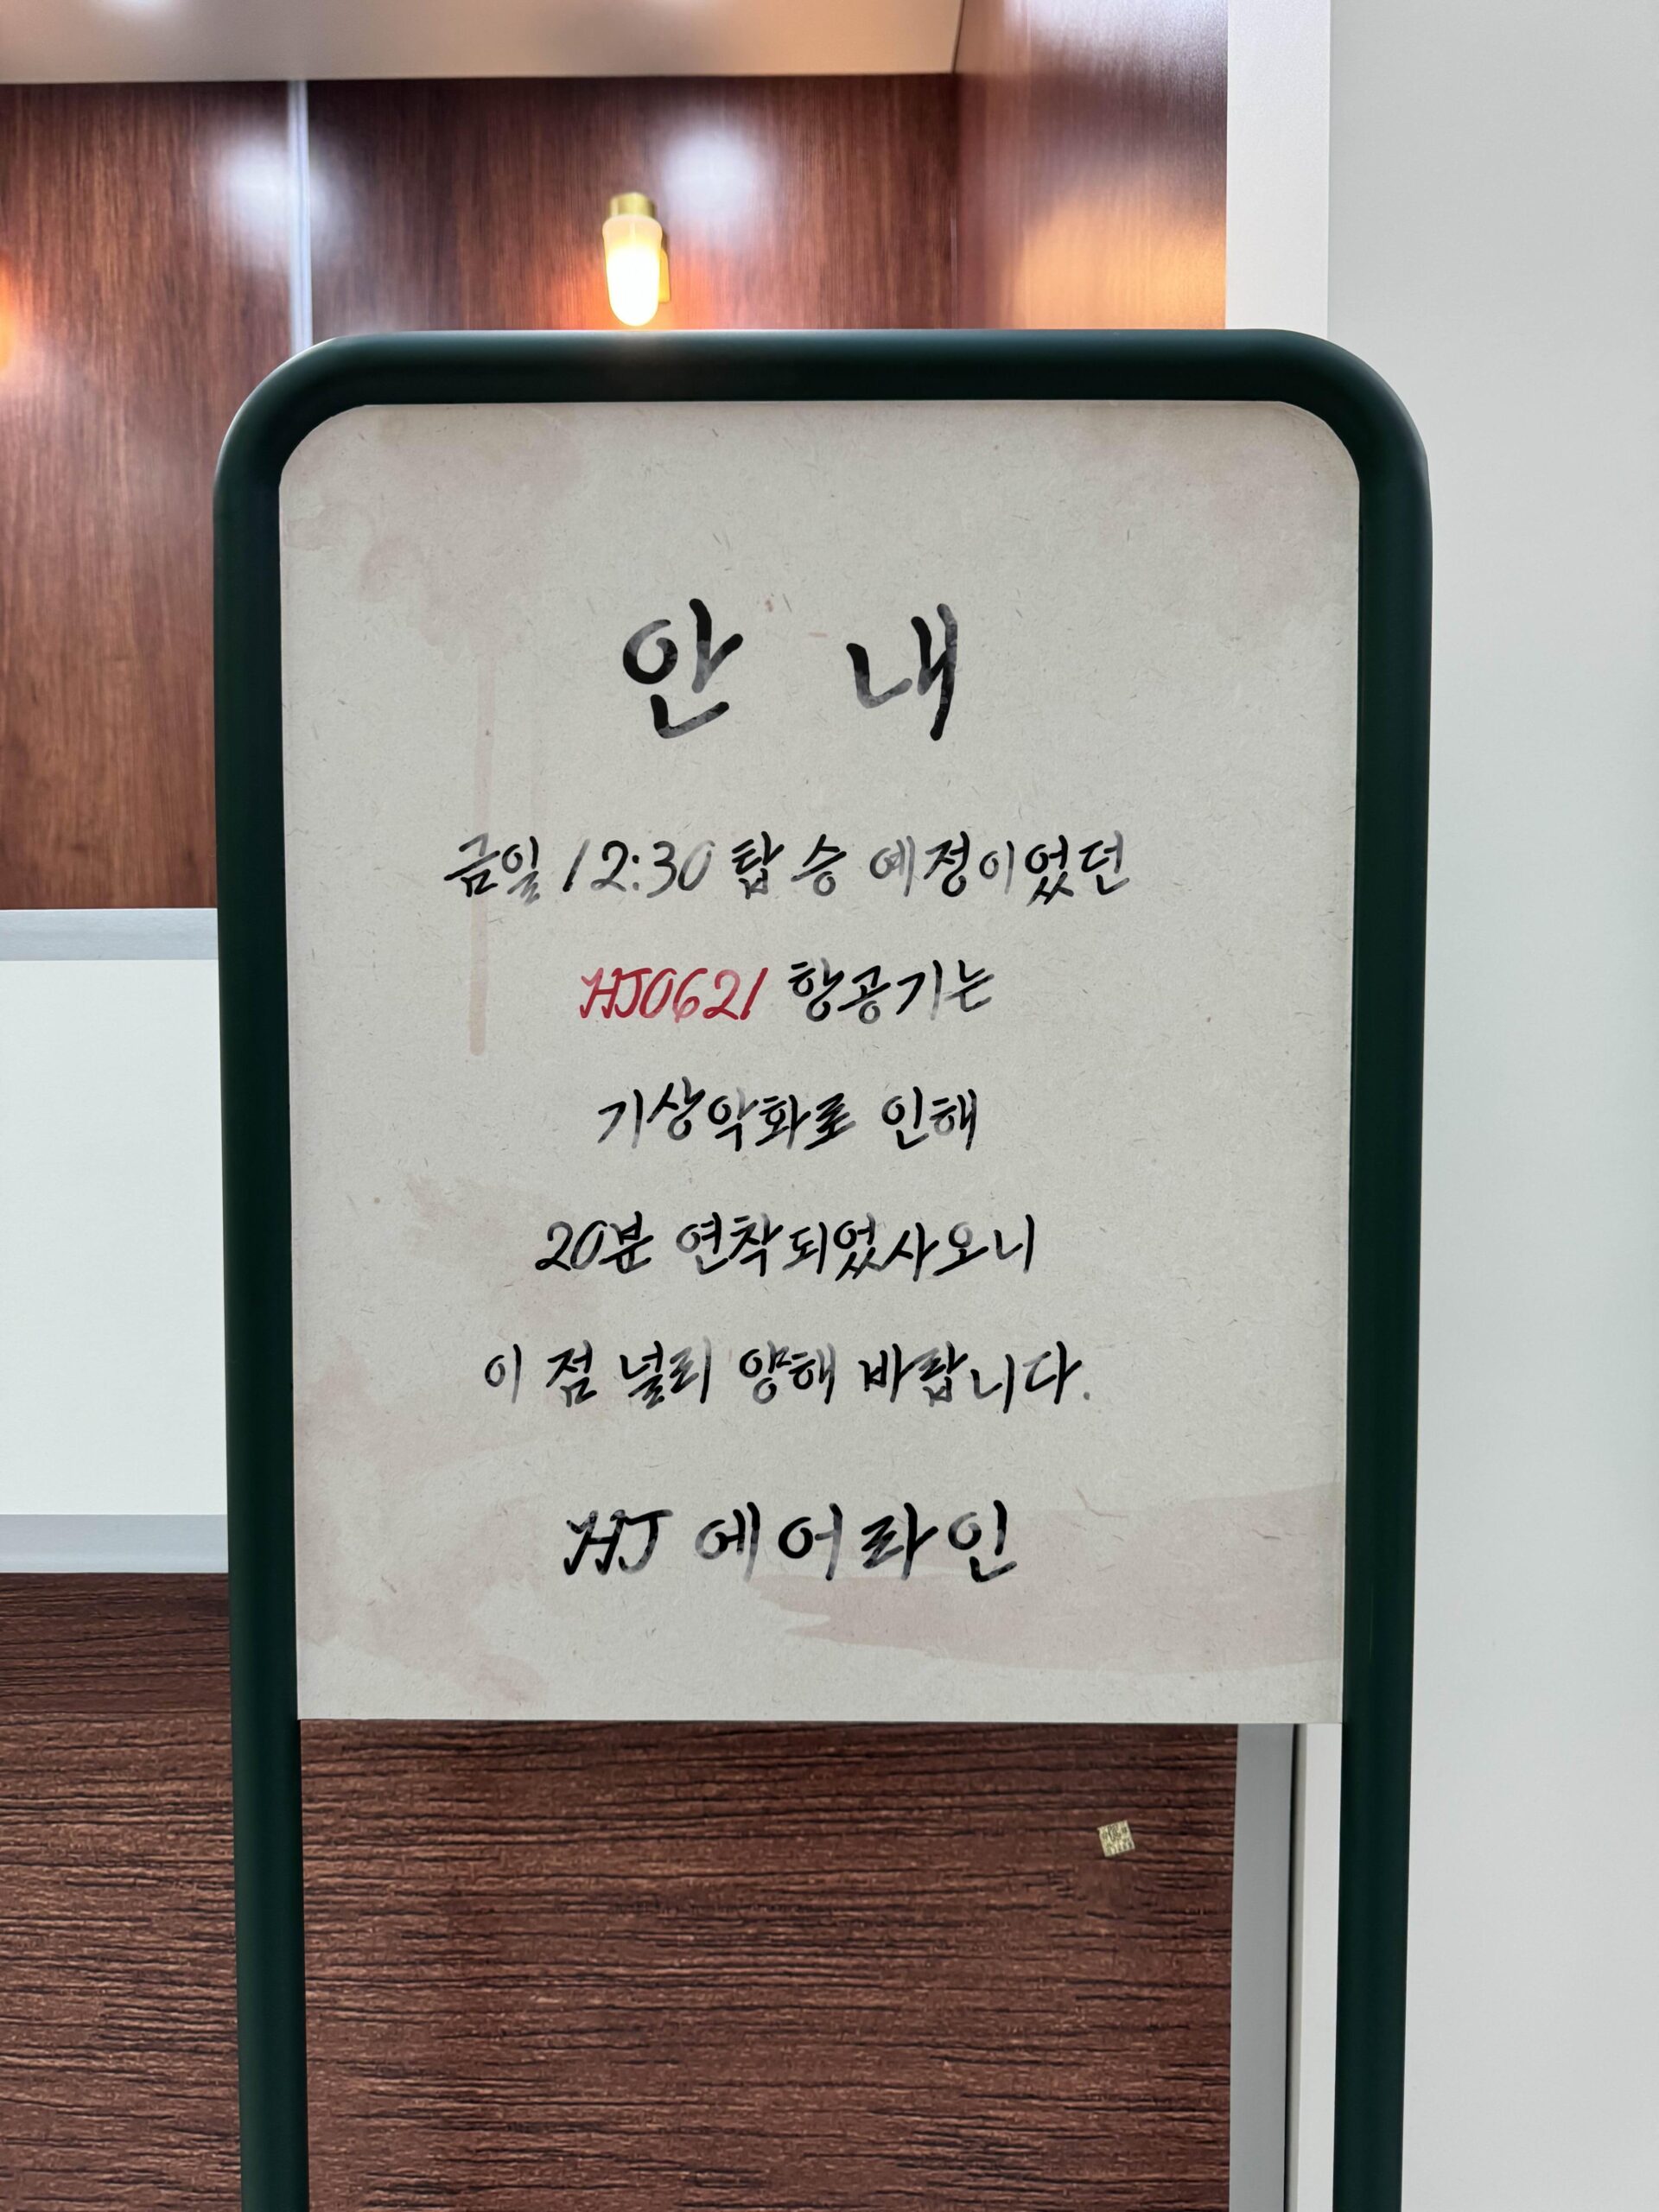 안 내
금일 12:30 탑승 예정이었던
HJ0621 항공기는
기상악화로 인해
20분 연착되었사오니
이 점 널리 양해 바랍니다.
HJ 에어라인